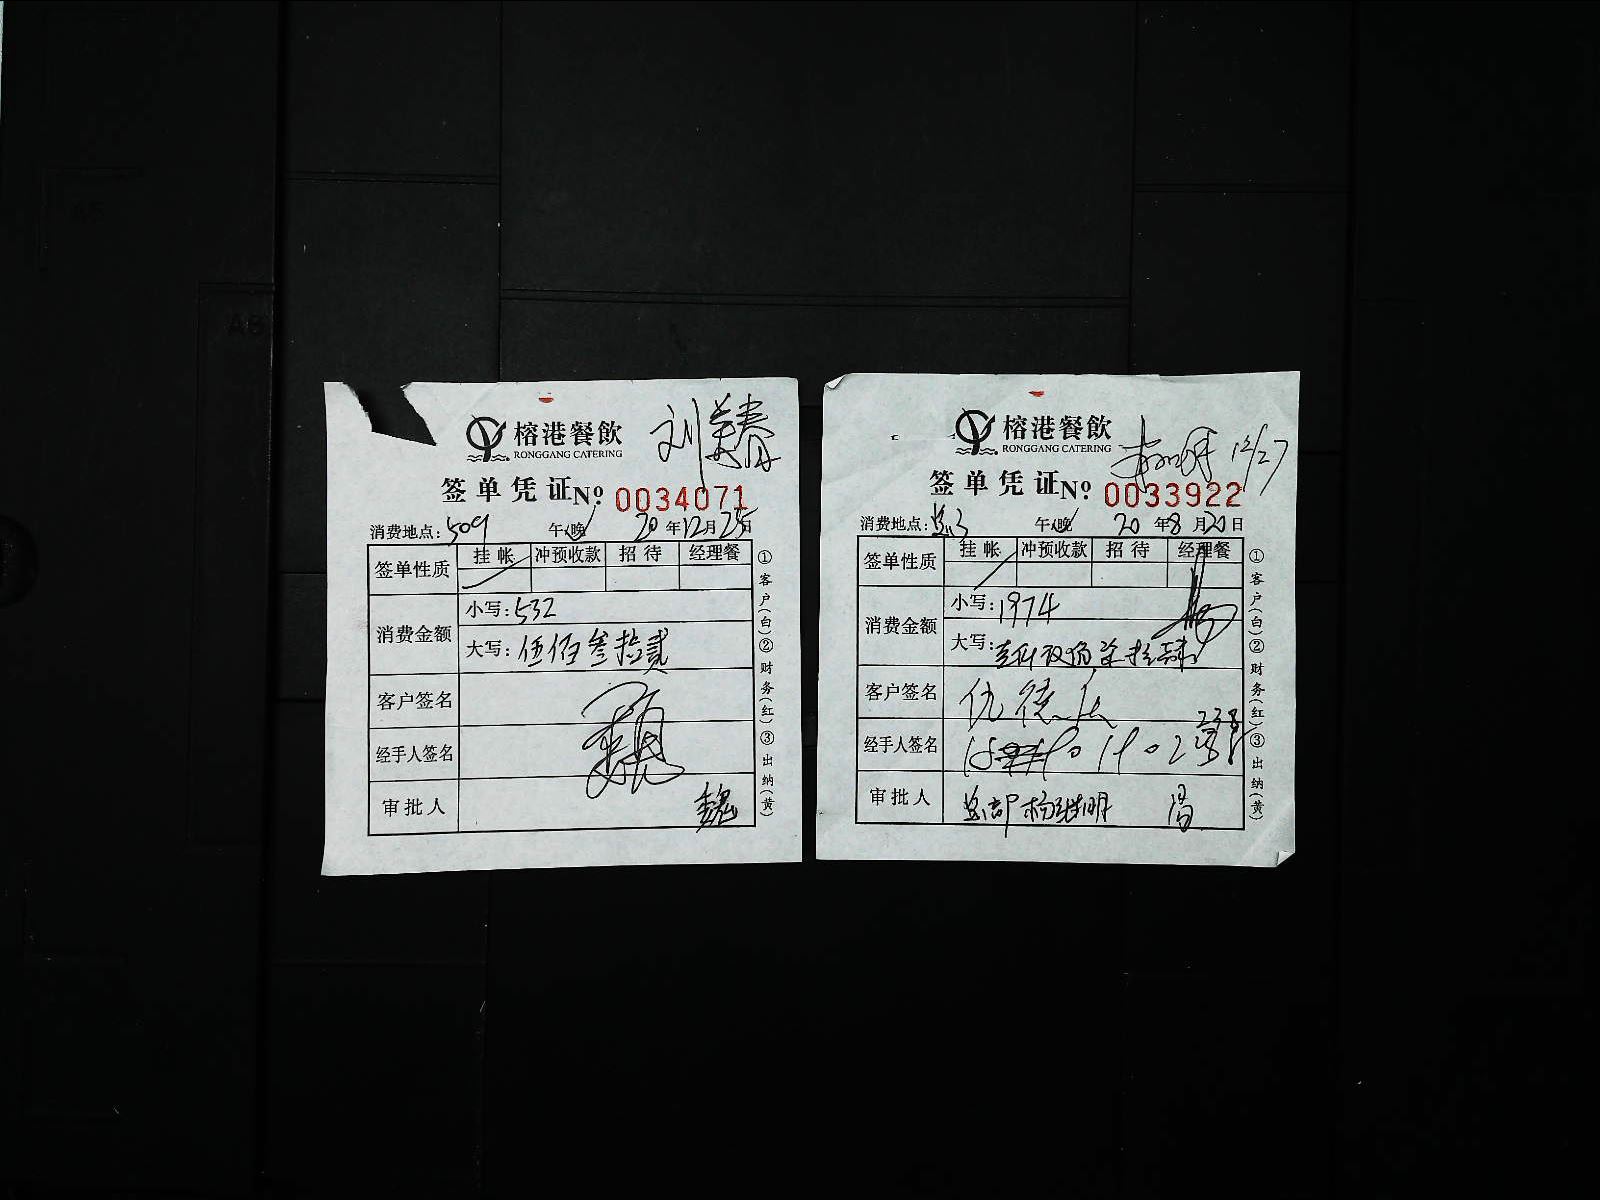 刘美春
榕港餐飲
RONGGANG CATERING
签单凭证 No. 0034071
消费地点: 509 午 晚 20年12月25日
签单性质 挂帐 冲预收款 招待 经理餐
消费金额 小写: 532
大写: 伍佰叁拾贰
客户签名
经手人签名
审批人 魏
①客户(白)②财务(红)③出纳(黄)
榕港餐飲
RONGGANG CATERING
12/27
签单凭证 No. 0033922
消费地点: 午 晚 20年8月20日
签单性质 挂帐 冲预收款 招待 经理餐
消费金额 小写: 1974
大写: 壹仟玖佰柒拾肆
客户签名 仇德
经手人签名
审批人 杨继明 冯
①客户(白)②财务(红)③出纳(黄)